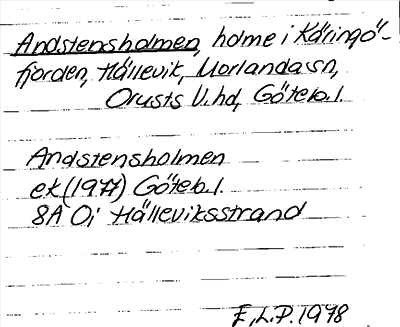 Andstensholmen, holme i Käringö-
fjorden, Hällevik, Morlanda sn,
Orusts V. hd, Göteb.l.
Andstensholmen
ek (1977) Göteb.l.
8A 0i Hälleviksstrand
E.L.P. 1978